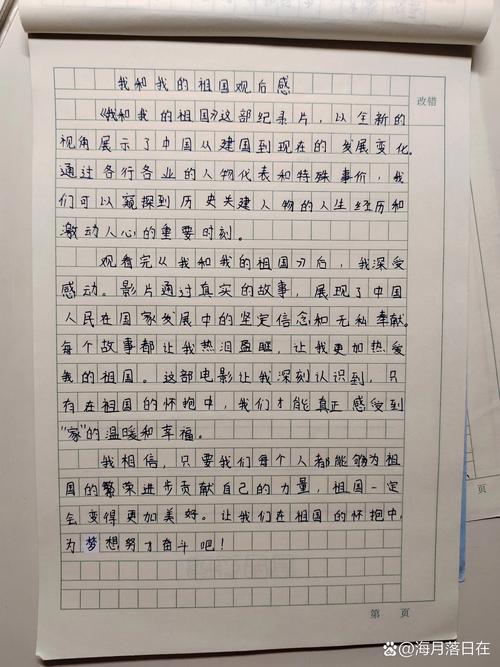 我和我的祖国观后感
改错
《我和我的祖国》这部纪录片，以全新的
视角展示了中国从建国到现在的发展变化。
通过各行各业的人物代表和特殊事价，我
们可以窥探到历史关建人物的人生经历和
激动人心的重要时刻。
观看完《我和我的祖国》后，我深受
感动。影片通过真实的故事，展现了中国
人民在国家发展中的坚定信念和无私奉献。
每个故事都让我热泪盈眶，让我更加热爱
我的祖国。这部电影让我深刻认识到，只
有在祖国的怀抱中，我们才能真正感受到
“家”的温暖和幸福。
我相信，只要我们每个人都能够为祖
国的繁荣进步贡献自己的力量，祖国一定
会变得更加美好。让我们在祖国的怀抱中，
为梦想努力奋斗吧！
页
第 页
@海月落日在